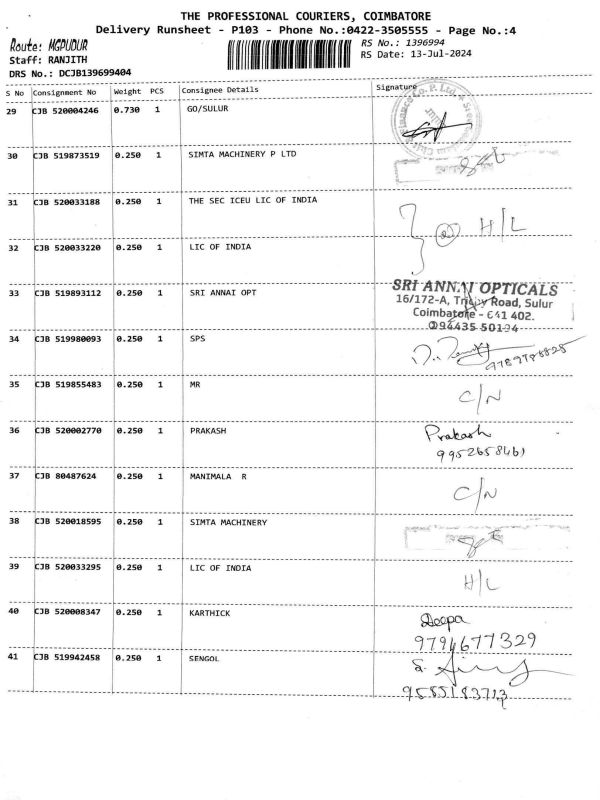 THE PROFESSIONAL COURIERS, COIMBATORE
Delivery Runsheet - P103 - Phone No.:0422-3505555 - Page No.:4
Route: MGPUDUR
Staff: RANJITH
DRS No.: DCJB139699404
RS No.: 1396994
RS Date: 13-Jul-2024
S No Consignment No Weight PCS Consignee Details Signature
29 CJB 520004246 0.730 1 GO/SULUR
30 CJB 519873519 0.250 1 SIMTA MACHINERY P LTD
31 CJB 520033188 0.250 1 THE SEC ICEU LIC OF INDIA
H/L
32 CJB 520033220 0.250 1 LIC OF INDIA
33 CJB 519893112 0.250 1 SRI ANNAI OPT
SRI ANNAI OPTICALS
16/172-A, Trichy Road, Sulur
Coimbatore - 641 402.
34 CJB 519980093 0.250 1 SPS
35 CJB 519855483 0.250 1 MR
C/N
36 CJB 520002770 0.250 1 PRAKASH
Prakash
9952658461
37 CJB 80487624 0.250 1 MANIMALA R
C/N
38 CJB 520018595 0.250 1 SIMTA MACHINERY
39 CJB 520033295 0.250 1 LIC OF INDIA
H/L
40 CJB 520008347 0.250 1 KARTHICK
Deepa
9794677329
41 CJB 519942458 0.250 1 SENGOL
9585183713